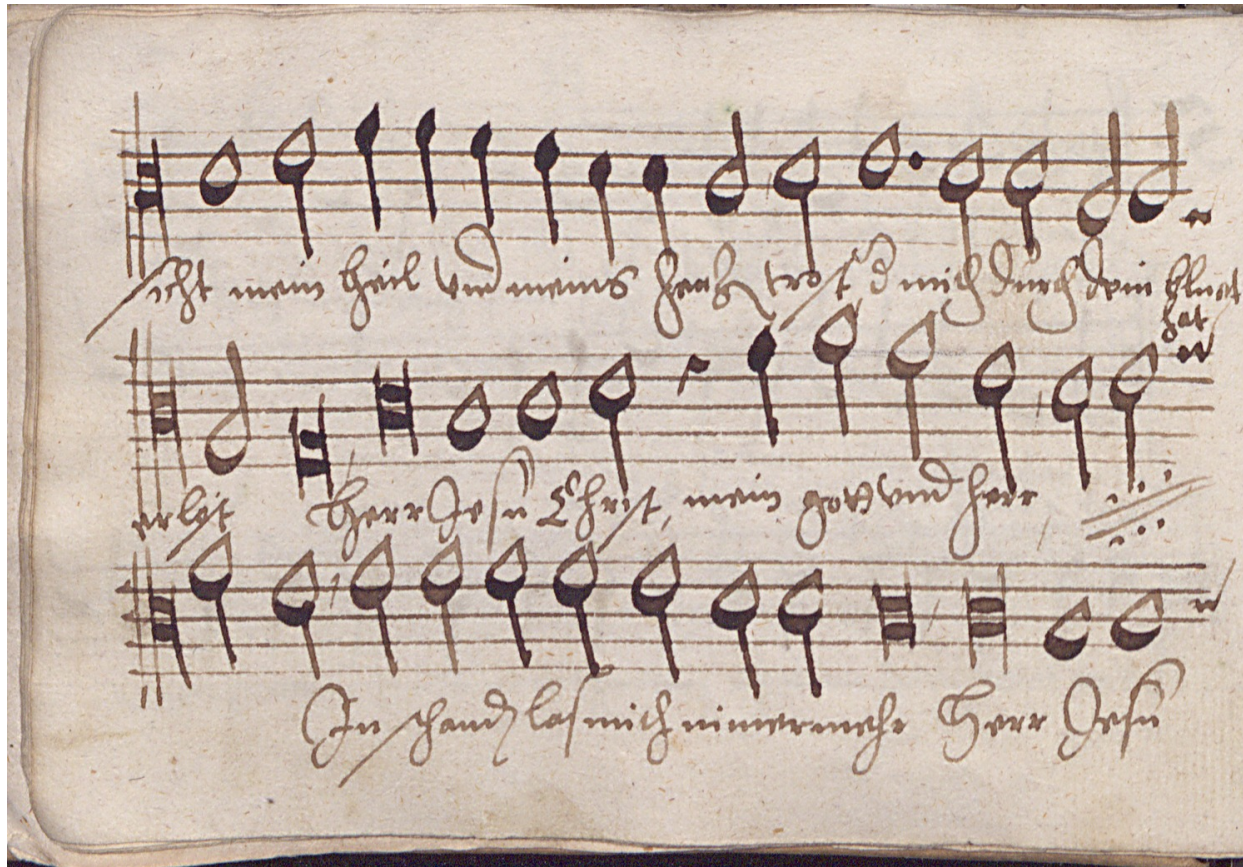 icht mein heil und meins hertz trost, d mich durch dein bluot
hat
erlöst Herr Jesu Christ, mein gott vnd herr
In schand las mich nimermehr Herr Jesu